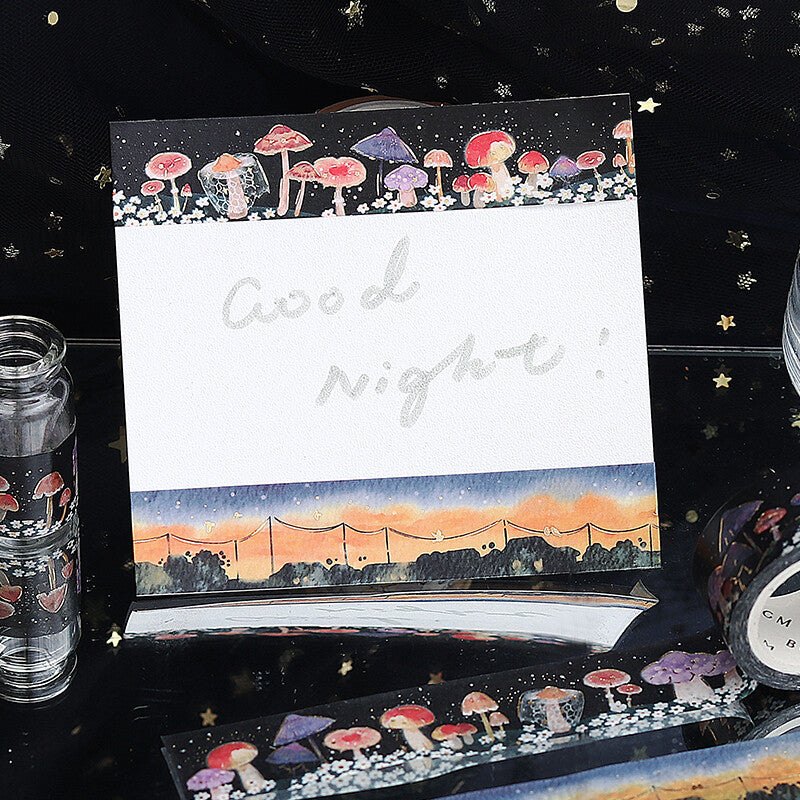 Good
Night!
GM
M B